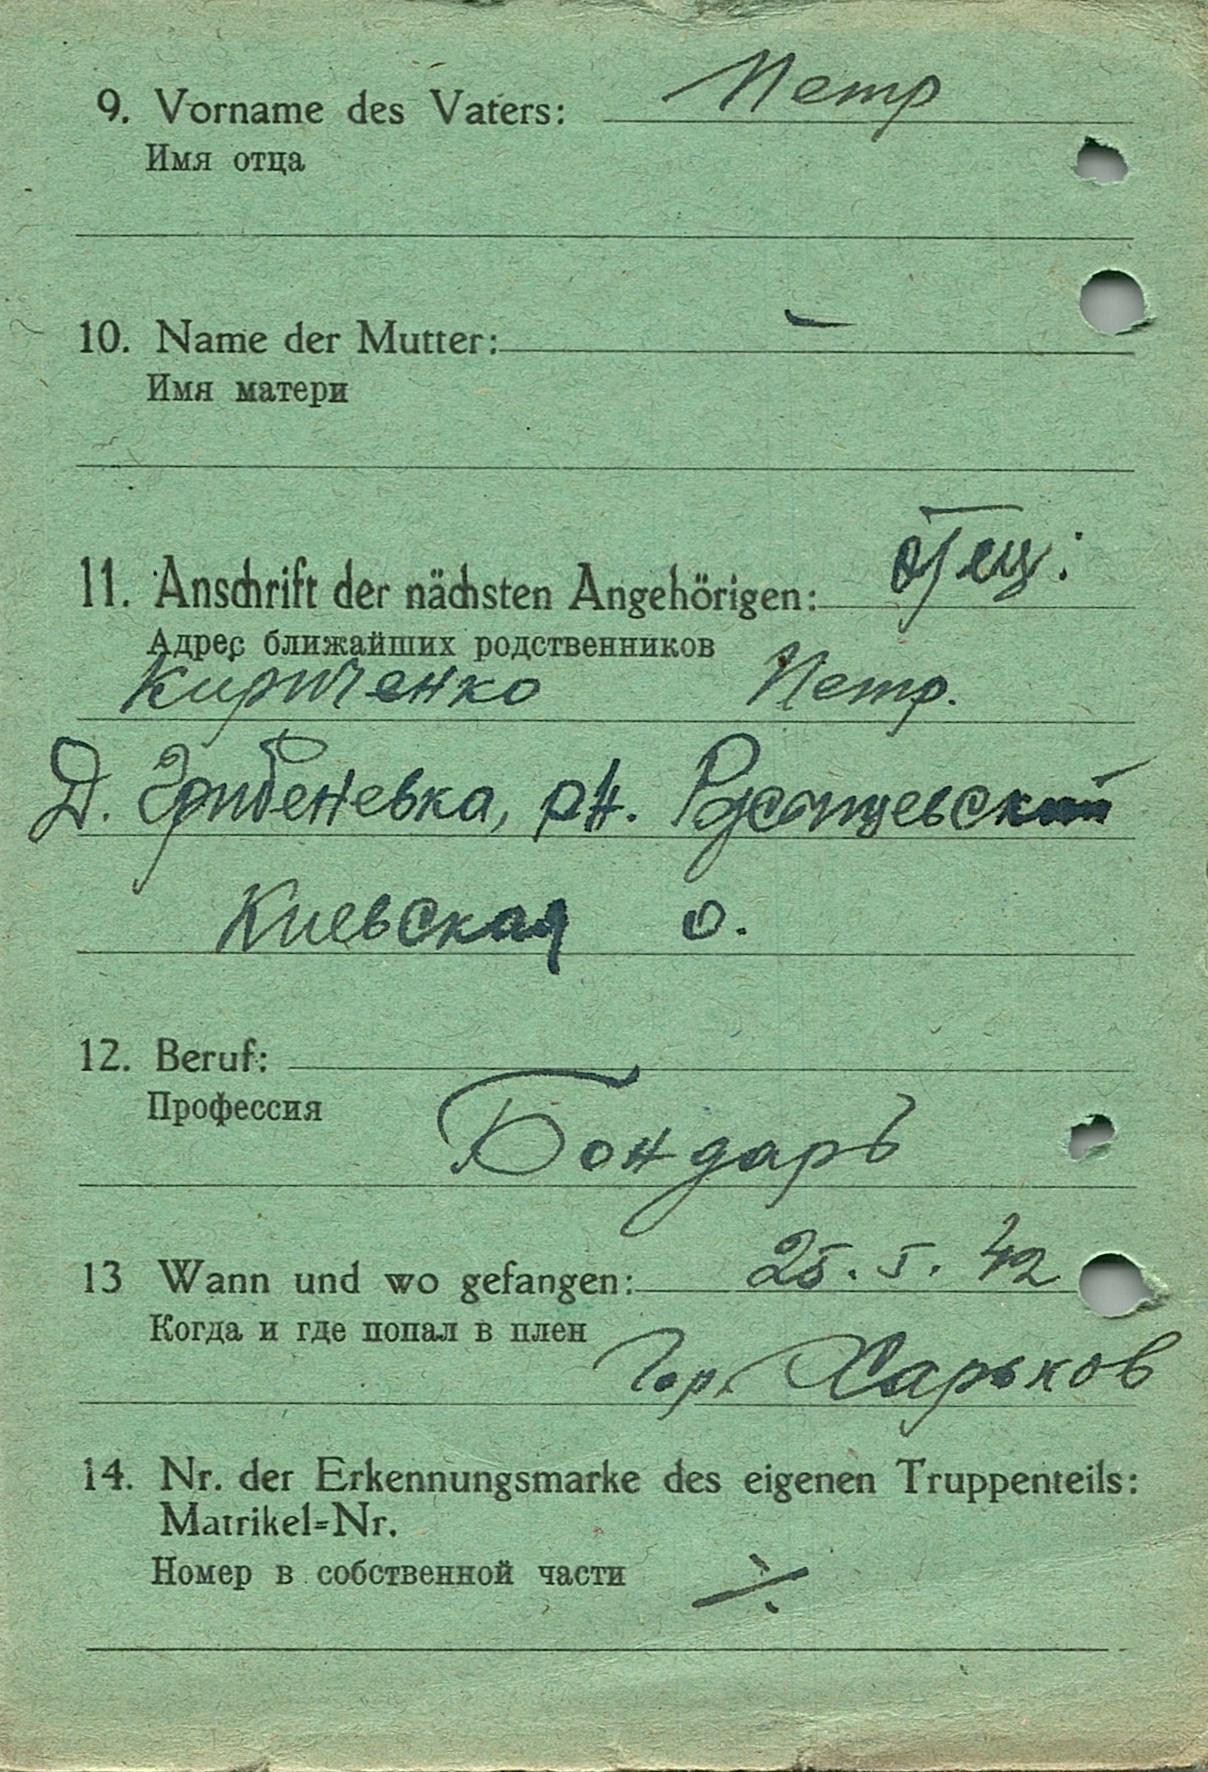 9. Vorname des Vaters: Петр
Имя отца
10. Name der Mutter: –
Имя матери
11. Anschrift der nächsten Angehörigen: отец:
Адрес ближайших родственников
Кириченко Петр.
Д. рн.
Киевская о.
12. Beruf:
Профессия
Бондарь
13 Wann und wo gefangen: 25. 5. 42
Когда и где попал в плен
Гор. Харьков
14. Nr. der Erkennungsmarke des eigenen Truppenteils:
Matrikel=Nr.
Номер в собственной части ·/·